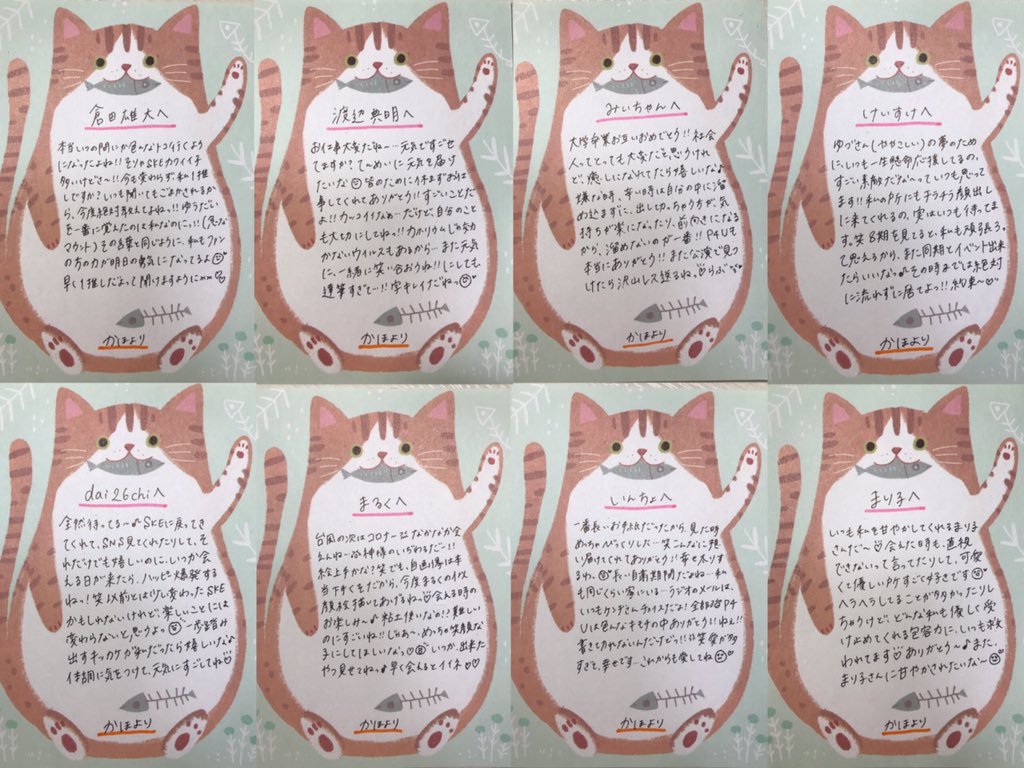 倉田雄大へ
本当いつの間にか色んなトコ行くよう
になったよね!!そりゃSKEカワイイ子
多いけどさ〜!!今も変わらず私1推
しですか?いつも聞いてもごまかされるか
ら、今度絶対答えてよねっ!!ゆうだい
を一番に覚えたのは私なのにっ!!(急な
マウント)その言葉と同じように、私もファン
の方の力が明日の勇気になってるよ
早く1推しだよって聞けますようにmm
かほより
渡辺典明へ
お仕事大変だね〜元気にすごせ
てますか?てんめいに元気を届け
たいな 皆のために休まずお仕
事してくれてありがとう!!すごいことだ
よ!!カッコイイなぁ…だけど、自分のこと
も大切にしてね!!カホリウムしか効
かないウイルスもあるから…また元気
に、一緒に笑い合おうね!!にしても
達筆すぎて…!!字キレイだねっ
かほより
みいちゃんへ
大学卒業お互いおめでとう!!社会
人ってとっても大変だと思うけれ
ど、癒しになれてたら嬉しいな♪
嫌な時、辛い時は自分の中に溜
め込まずに、出し切っちゃう方が気
持ちが楽になったり、前向きになる
から、溜めないのが一番!!P4U
本当にありがとう!!また公演で見つ
けたら沢山レス送るねっ らぶ
かほより
けいすけへ
ゆづさん(ややこしい)の夢のため
に、いつも一生懸命だ推してるの、
すごい素敵だな〜っていつも思って
ます!!私のPガにもチラチラ顔出し
に来てくれるの、実はいつも待ってま
す。笑 8期を見てると、私も頑張ろっ
て思えるから、また同期でイベント出来
たらいいなっ♪その時までは絶対
に流れずに居てよっ!!約束〜
かほより
dai26chiへ
全然待ってる〜♪SKEに戻ってき
てくれて、SNS見てくれたりして、そ
れだけでも嬉しいのに、いつか会
える日が来たら、ハッピー爆発する
ねっ!笑 以前とは少し変わったSKE
かもしれないけれど、楽しいことには
変わらないと思うよっ 一歩踏み
出すキッカケがかほだったら嬉しいな♪
体調に気をつけて、元気にすごしてね
かほより
まるくへ
台風の次はコロナ…なかなか会
えんね…神様のいぢわるだー!!
絵上手かな?笑 でも、自画像は本
当下手くそだから、今度まるくのイメ
顔絵描いてあげるね 会える日の
お楽しみ〜♪粘土使いなの!!難しい
のにすごいね!!じゃあ〜、めっちゃ笑顔なか
まにしてほしいなっ いつか、出来た
やつ見せてねっ♪早く会えるとイイネ
かほより
いんちょへ
一番長いお手紙だったから、見た時
めっちゃびっくりした…笑 こんなに想
い届けてくれてありがとう!幸せ太りす
るわ、 長い自粛期間だよね…私
も同じくらい家にいる…ラジオのメールは、
いつもケンチさんライスだよ!全部踏P4
Uは色んなキモチの中ありがとういねぇ!!
書ききれないんだけどっ!!笑 愛が多
すぎて、幸せです…これからも愛してね
かほより
まり子へ
いつも私を甘やかしてくれるまり子
さんだ〜 会えた時も、直視
できないって言ってたりして、可愛
くて優しいPガすごく好きです
ヘラヘラしてることが多かったりし
ちゃうけど、どんな私も優しく受
け止めてくれる包容力に、いつも救
われてます ありがとう〜♪また、
まり子さんに甘やかされたいな〜
かほより